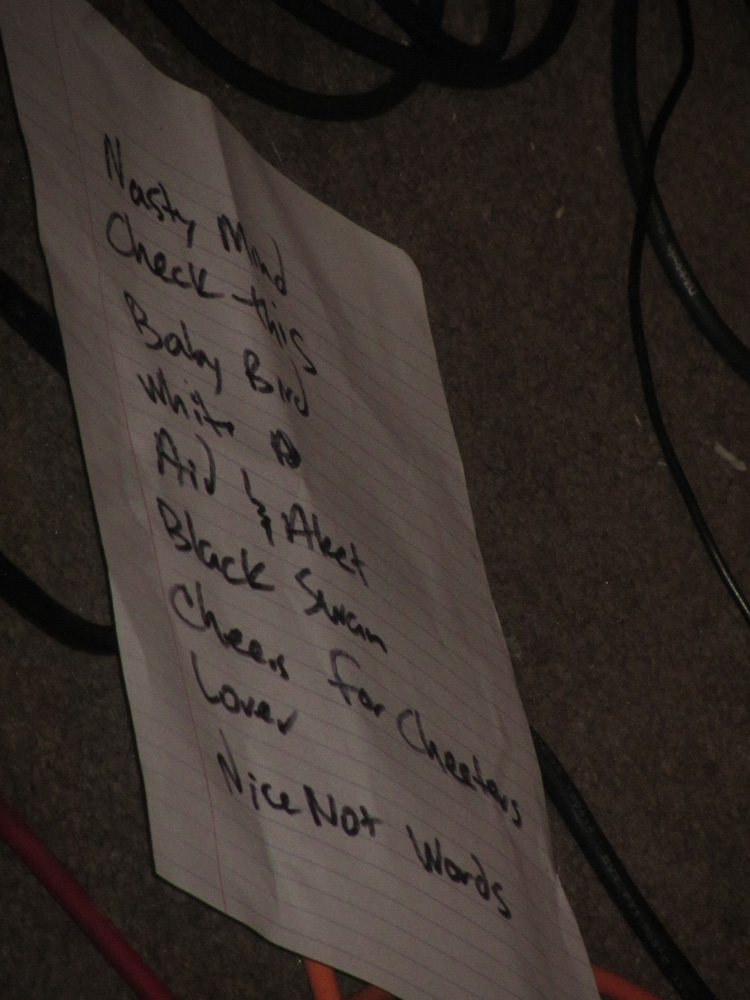 Nasty Mind
Check this
Baby Bird
White
Aid & Abet
Black Swan
Cheers For Cheeters
Lover
Nice Not Words